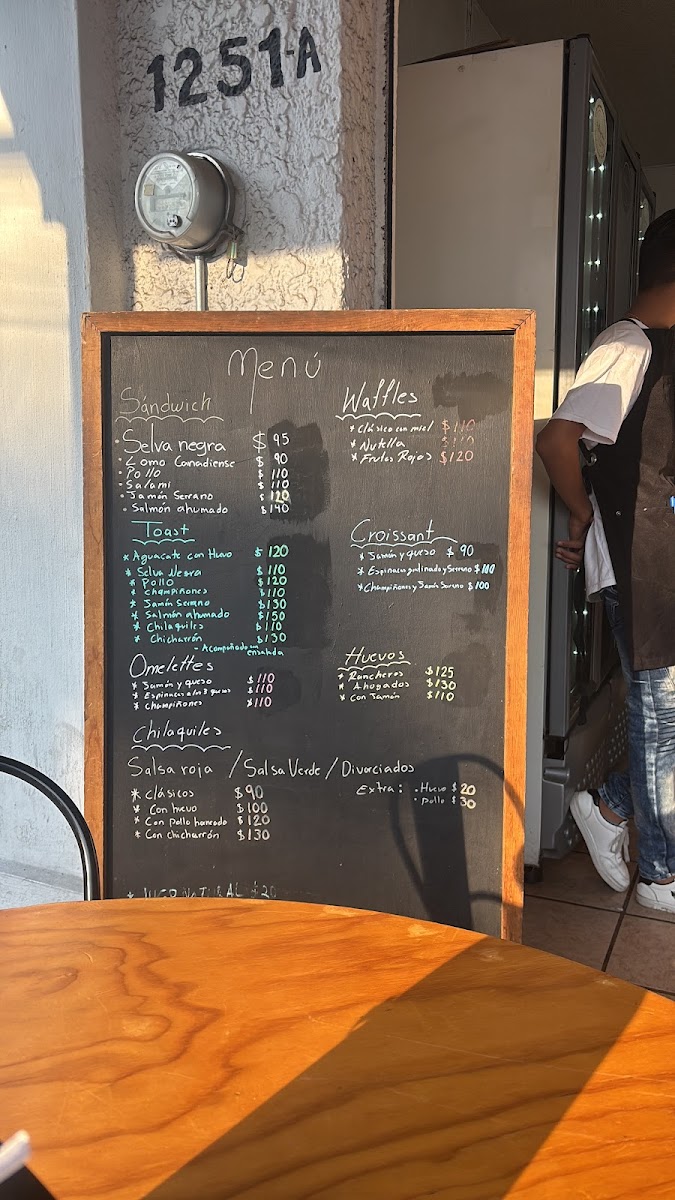 1251-A
Menú
Sándwich
• Selva negra $ 95
• Lomo Canadiense $ 90
• Pollo $ 110
• Salami $ 110
• Jamón Serrano $ 120
• Salmón ahumado $ 140
Toast
* Aguacate con Huevo $ 120
* Selva Negra $ 110
* Pollo $ 120
* Champiñones $ 110
* Jamón Serrano $ 130
* Salmón ahumado $ 150
* Chilaquiles $ 110
* Chicharrón $ 130
- Acompañado con ensalada
Omelettes
* Jamón y queso $ 110
* Espinacas a los 3 quesos $ 110
* Champiñones $ 110
Waffles
* Clásico con miel $ 110
* Nutella $ 110
* Frutos Rojos $ 120
Croissant
* Jamón y queso $ 90
* Espinacas gratinado y Serrano $ 110
* Champiñones y Jamón Serrano $ 100
Huevos
* Rancheros $ 125
* Ahogados $ 130
* Con Jamón $ 110
Chilaquiles
Salsa roja / Salsa Verde / Divorciados
* Clásicos $ 90
* Con huevo $ 100
* Con pollo horneado $ 120
* Con chicharrón $ 130
Extra: • Huevo $ 20
• Pollo $ 30
* JUGO NATURAL $ 20